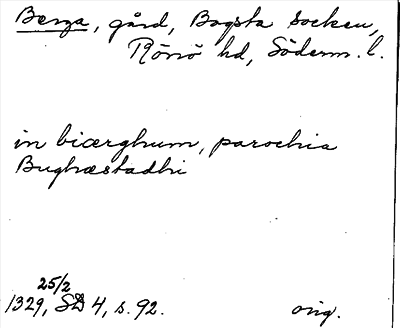 Berga, gård, Bogsta socken,
Rönö hd, Söderm. l.
in biærghum, parochia
Bughæstadhi
25/2
1329, SD 4, s. 92. orig.